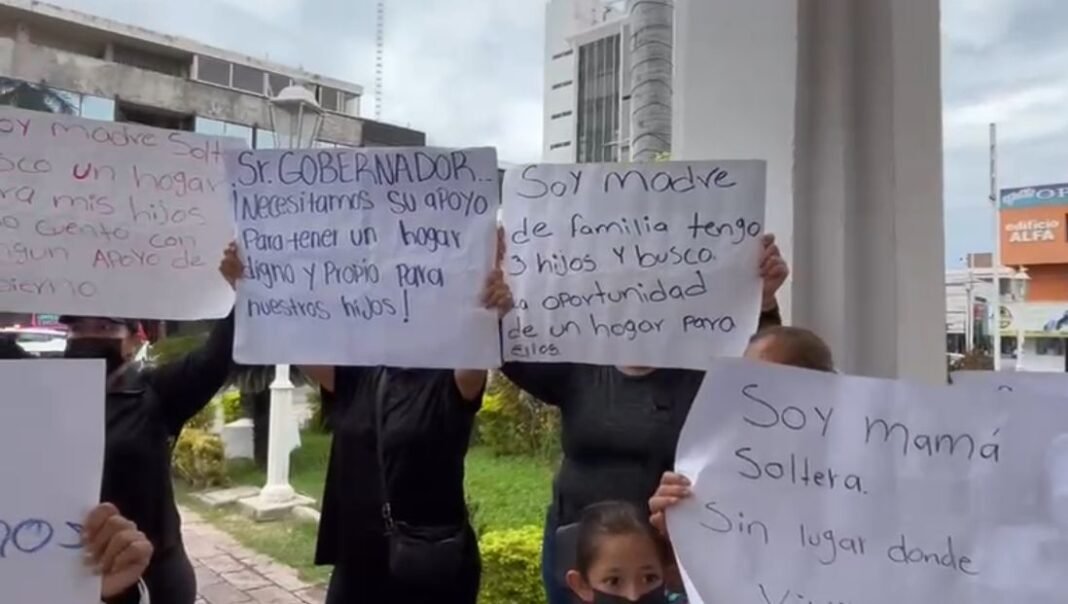 Soy madre Solt
un hogar
mis hijos
cuento con
APOYO de
Sr. GOBERNADOR...
¡Necesitamos su apoyo
Para tener un hogar
digno y Propio para
nuestros hijos!
Soy madre
de familia tengo
3 hijos y busco.
La oportunidad
de un hogar para
Ellos
Soy mamá
Soltera.
Sin lugar donde
OP
edificio
ALFA